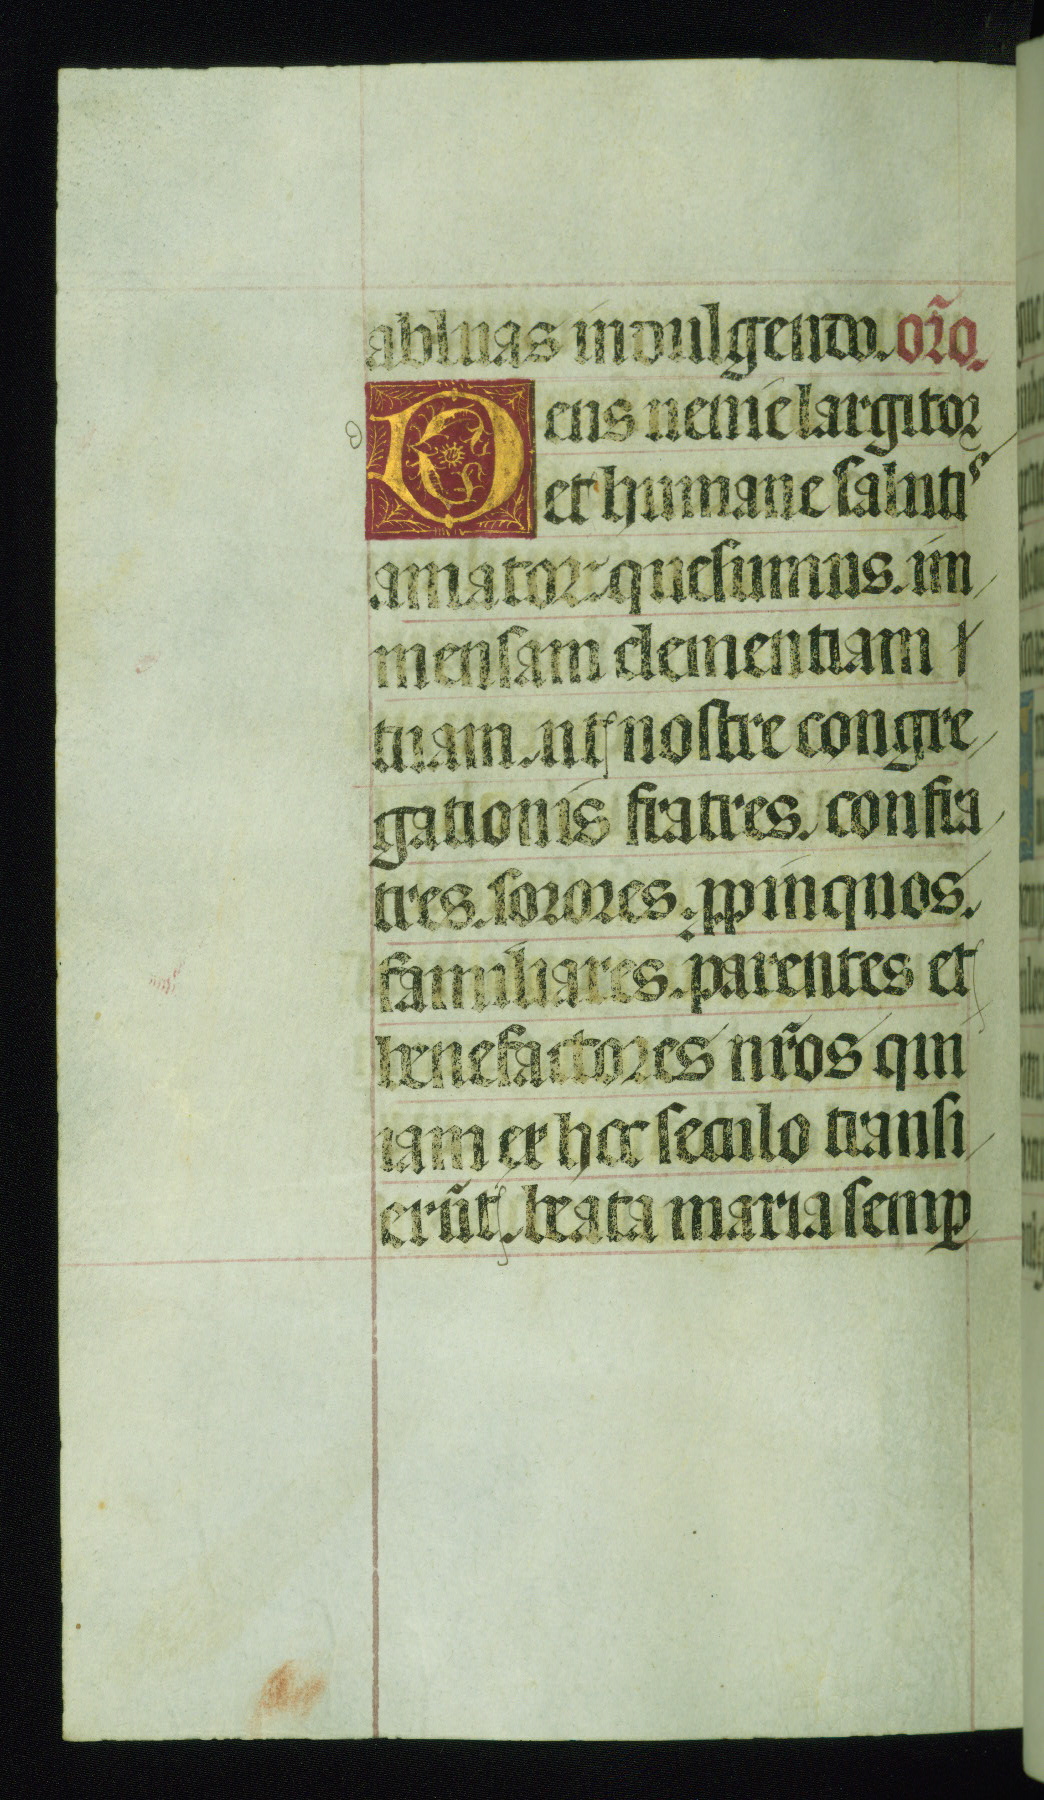 abluas indulgendo. or̃o.
Deus uenie largitor
et humane saluti⁹
amator quesumus. im
mensam clementiam
tuam. ut nostre congre
gationis fratres. confra
tres. sorores. ꝓpinquos.
familiares. parentes et
benefactores nr̃os qui
iam ex hoc seculo transi
erũt. beata maria semꝑ